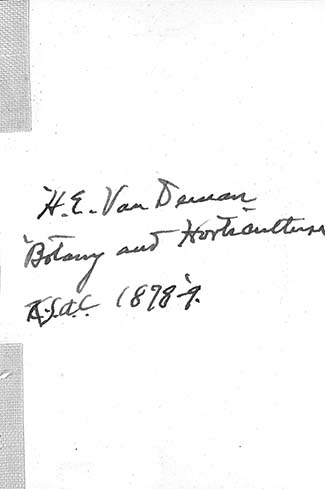 H.E. Van Deman
Botany and Horticulture
K.S.A.C. 1878-9.